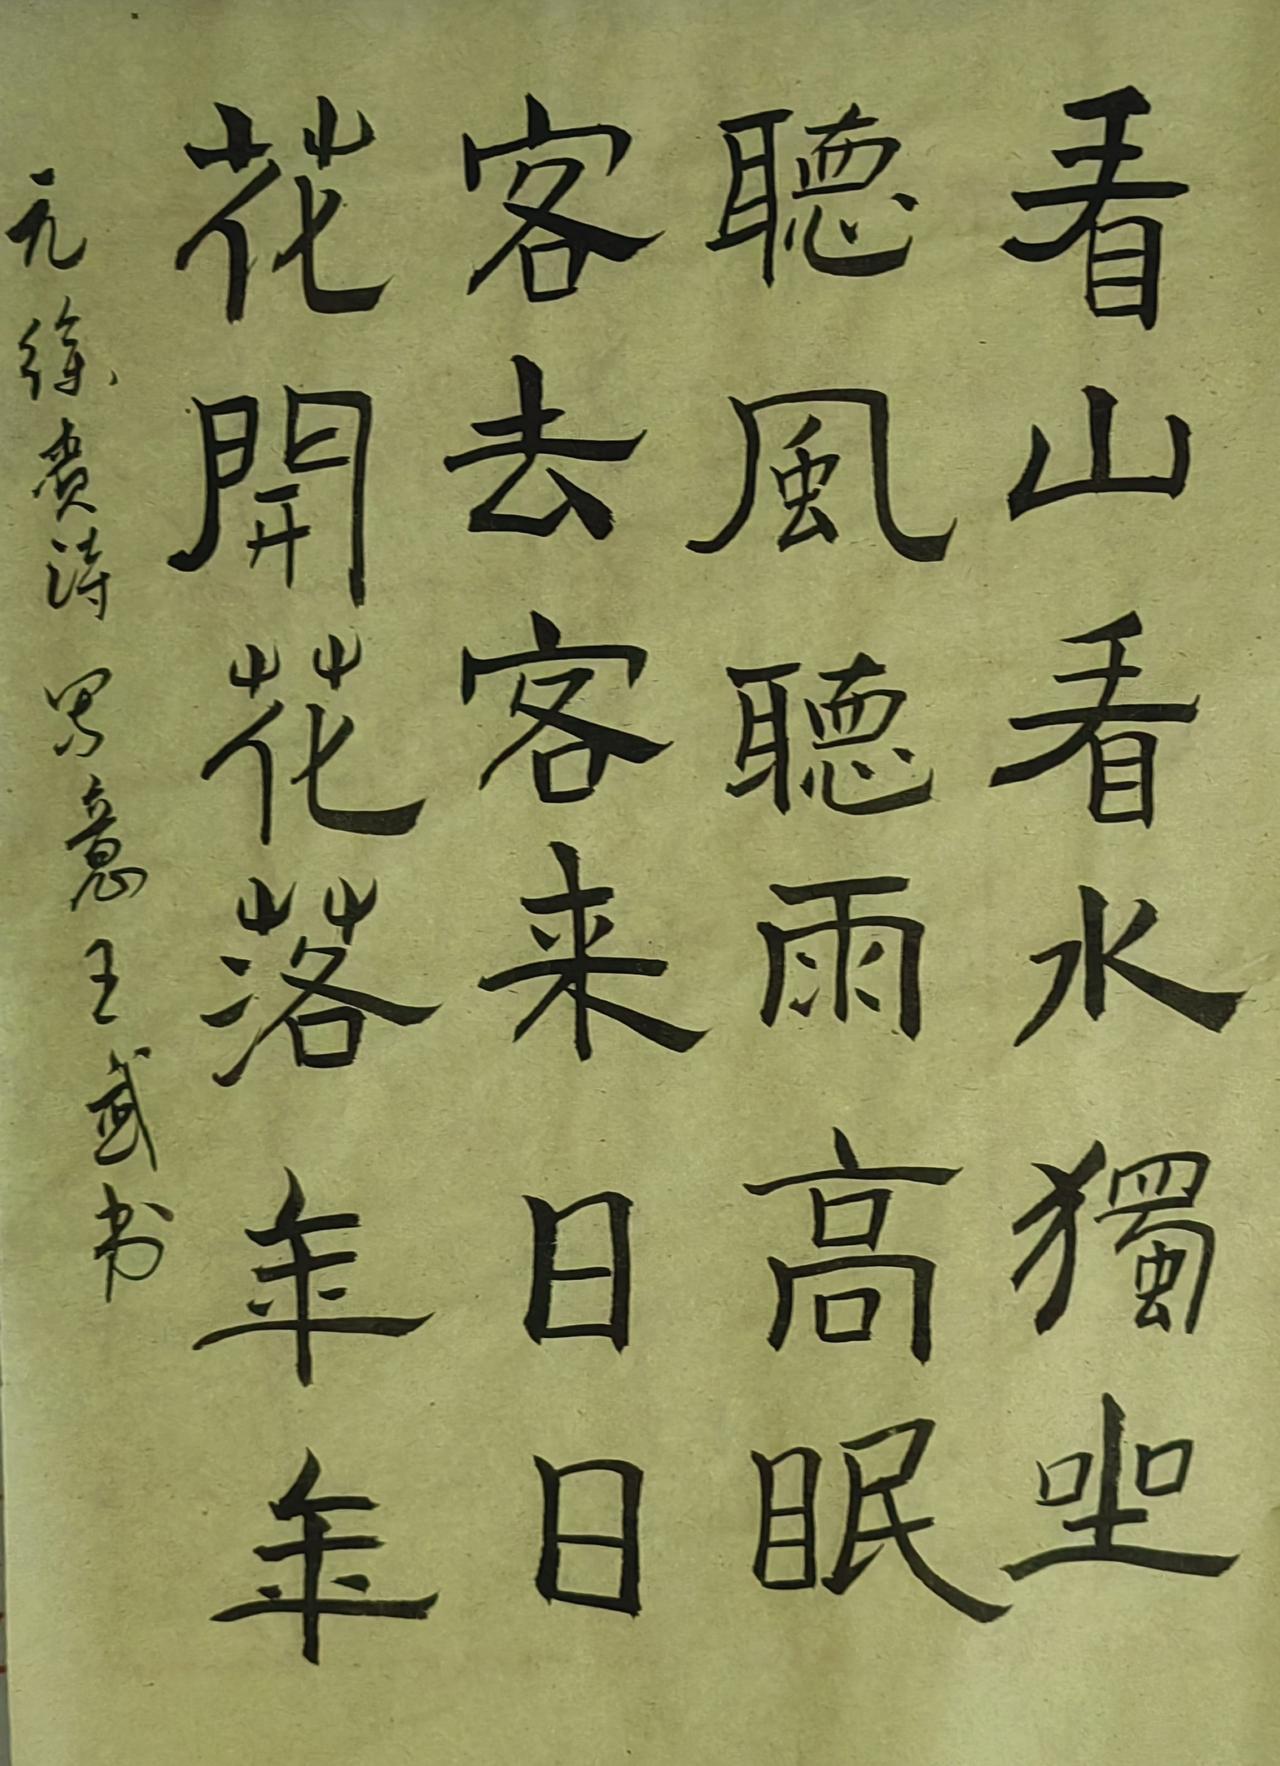 看山看水獨坐
聽風聽雨高眠
客去客来日日
花開花落年年
元徐賁詩 写意王武书